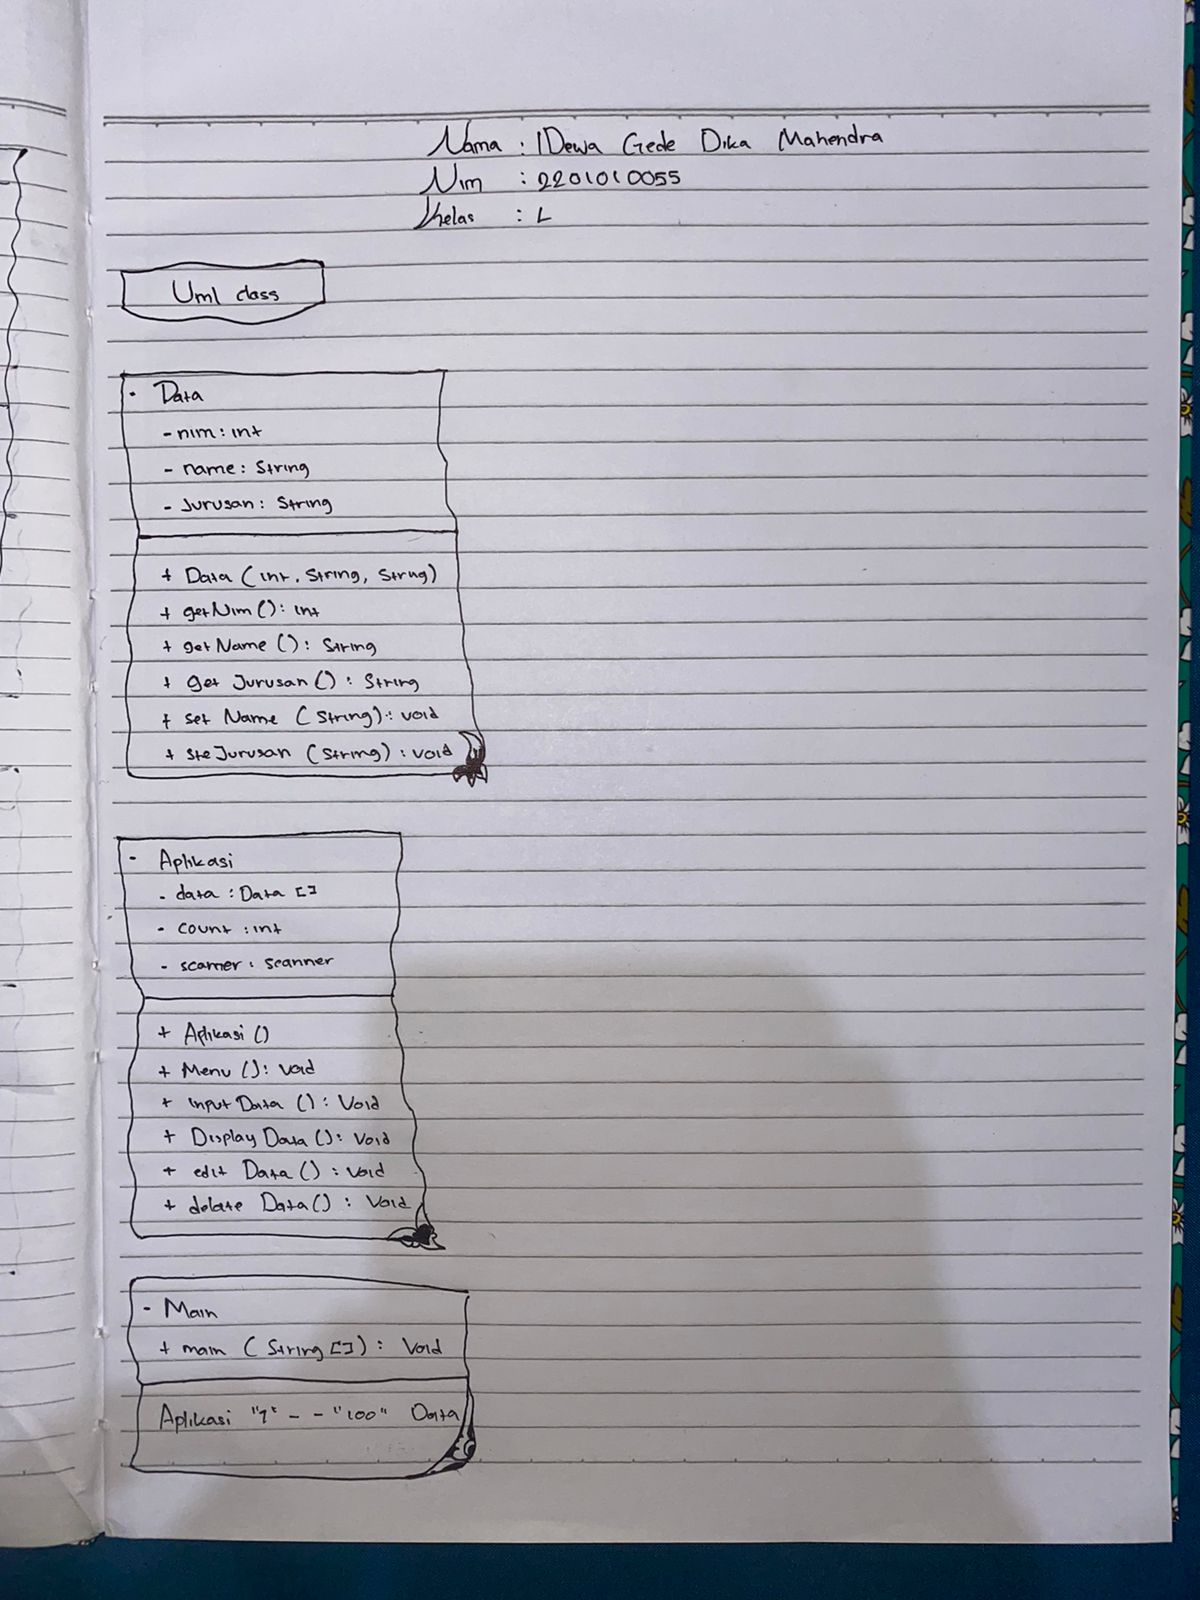 Nama : I Dewa Gede Dika Mahendra
Nim : 2201010055
Kelas : L
Uml class
- Data
- nim : int
- name : String
- Jurusan : String
+ Data (int, String, Strng)
+ getNim () : int
+ get Name () : String
+ get Jurusan () : String
+ set Name (String) : void
+ steJurusan (String) : void
- Aplikasi
- data : Data []
- count : int
- scanner : scanner
+ Aplikasi ()
+ Menu () : Void
+ input Data () : Void
+ Display Data () : Void
+ edit Data () : Void
+ delate Data () : Void
- Main
+ main (String []) : Void
Aplikasi "1" - - "100" Data